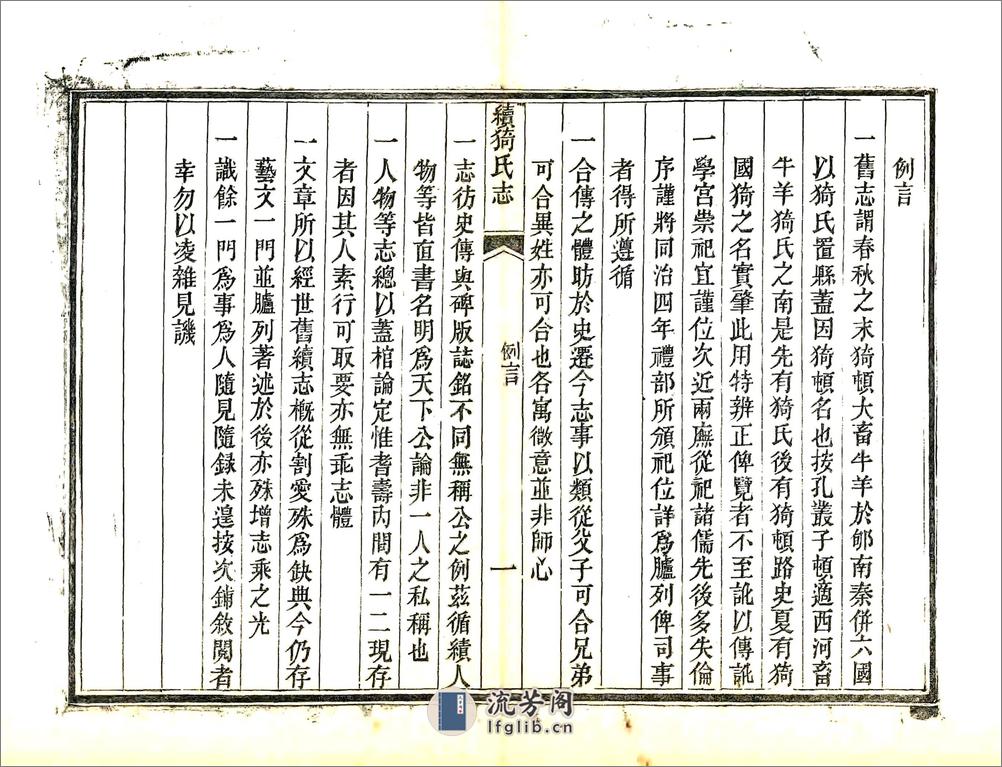 例言
一舊志謂春秋之末猗頓大畜牛羊於郇南秦併六國
以猗氏置縣蓋因猗頓名也按孔叢子頓適西河畜
牛羊猗氏之南是先有猗氏後有猗頓路史夏有猗
國猗之名實肇此用特辨正俾覽者不至訛以傳訛
一學宮崇祀宜謹位次近兩廡從祀諸儒先後多失倫
序謹將同治四年禮部所頒祀位詳爲臚列俾司事
者得所遵循
一合傳之體昉於史遷今志事以類從父子可合兄弟
可合異姓亦可合也各寓微意並非師心
續猗氏志
例言
一
一志彷史傳與碑版誌銘不同無稱公之例茲循績人
物等皆直書名明爲天下公論非一人之私稱也
一人物等志總以蓋棺論定惟耆壽內間有一二現存
者因其人素行可取要亦無乖志體
一文章所以經世舊續志概從割愛殊爲缺典今仍存
藝文一門並臚列著述於後亦殊增志乘之光
一識餘一門爲事爲人隨見隨録未遑按次鋪敘閱者
幸勿以凌雜見譏
流芳阁
lfglib.cn